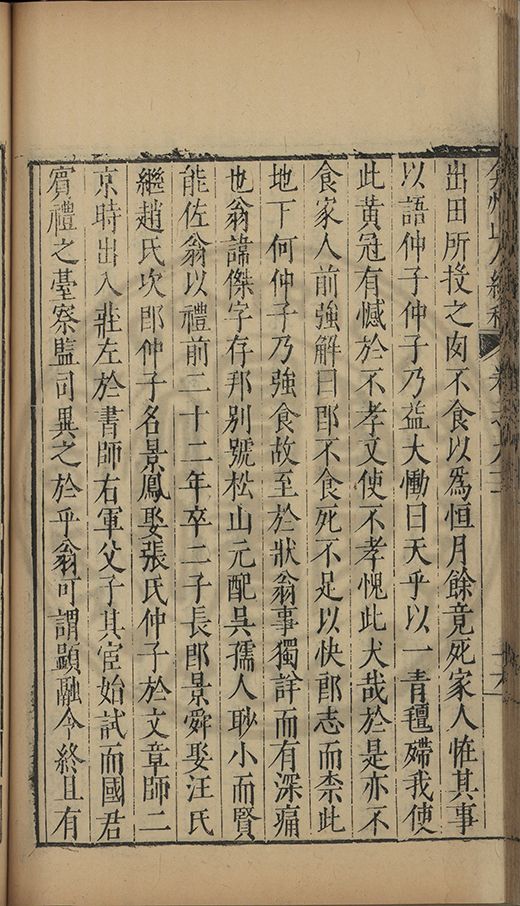 弇州山人續稿
卷之八十二
出田所投之肉不食以爲恒月餘竟死家人恠其事
以語仲子仲子乃益大慟曰天乎以一青氊殢我使
此黃冠有憾於不孝又使不孝愧此犬哉於是亦不
食家人前強解曰郎不食死不足以快郎志而柰此
地下何仲子乃強食故至於狀翁事獨詳而有深痛
也翁諱傑字存邦別號松山元配吳孺人耿小而賢
能佐翁以禮前二十二年卒二子長郎景舜娶汪氏
繼趙氏次郎仲子名景鳳娶張氏仲子於文章師二
京時出入莊左於書師右軍父子其宦始試而國君
賓禮之臺察監司異之於乎翁可謂顯融令終且有